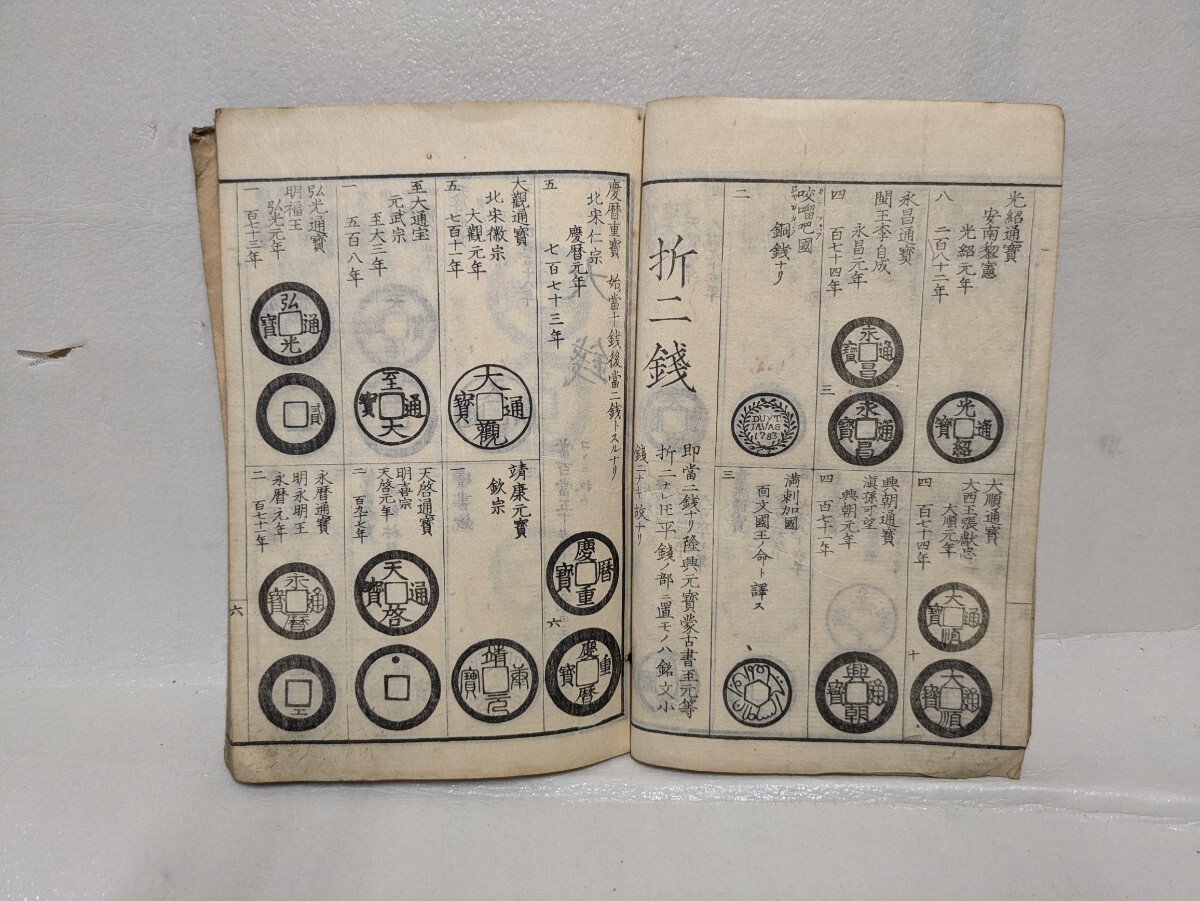 光紹通寶
安南黎憲
光紹元年
二百八十二年
八
光紹通
大順通寶
大西王張獻忠
大順元年
百七十四年
四
大順
十
大順通寶
永昌通寶
闖王李自成
永昌元年
百七十四年
四
永昌通寶
三
永昌通寶
興朝通寶
滇孫可望
興朝元年
百七十一年
四
興朝通寶
咬𠺕吧國
銅錢ナリ
二
DUYT
JAVAS
1783
満剌加國
面文國王ノ命ト譯ス
三
折二錢
即當二錢ナリ隆興元寶蒙古書至元等
折二ナレ𪜈平錢ノ部ニ置モノハ銘文小
錢ニナキ故ナリ
慶曆重寶 始當十錢後當二錢トスルナリ
北宋仁宗
慶曆元年
七百七十三年
五
慶曆重寶
六
慶曆重寶
大觀通寶
北宋徽宗
大觀元年
七百十一年
五
大觀通寶
靖康元寶
欽宗
一
靖康元寶
至大通宝
元武宗
至大三年
五百八年
一
至大通寶
天啓通寶
明熹宗
天啓元年
百九十七年
二
天啓通寶
弘光通寶
明福王
弘光元年
百七十三年
一
弘光通寶
貳
永曆通寶
明永明王
永曆元年
百七十一年
二
永曆通寶
工
六